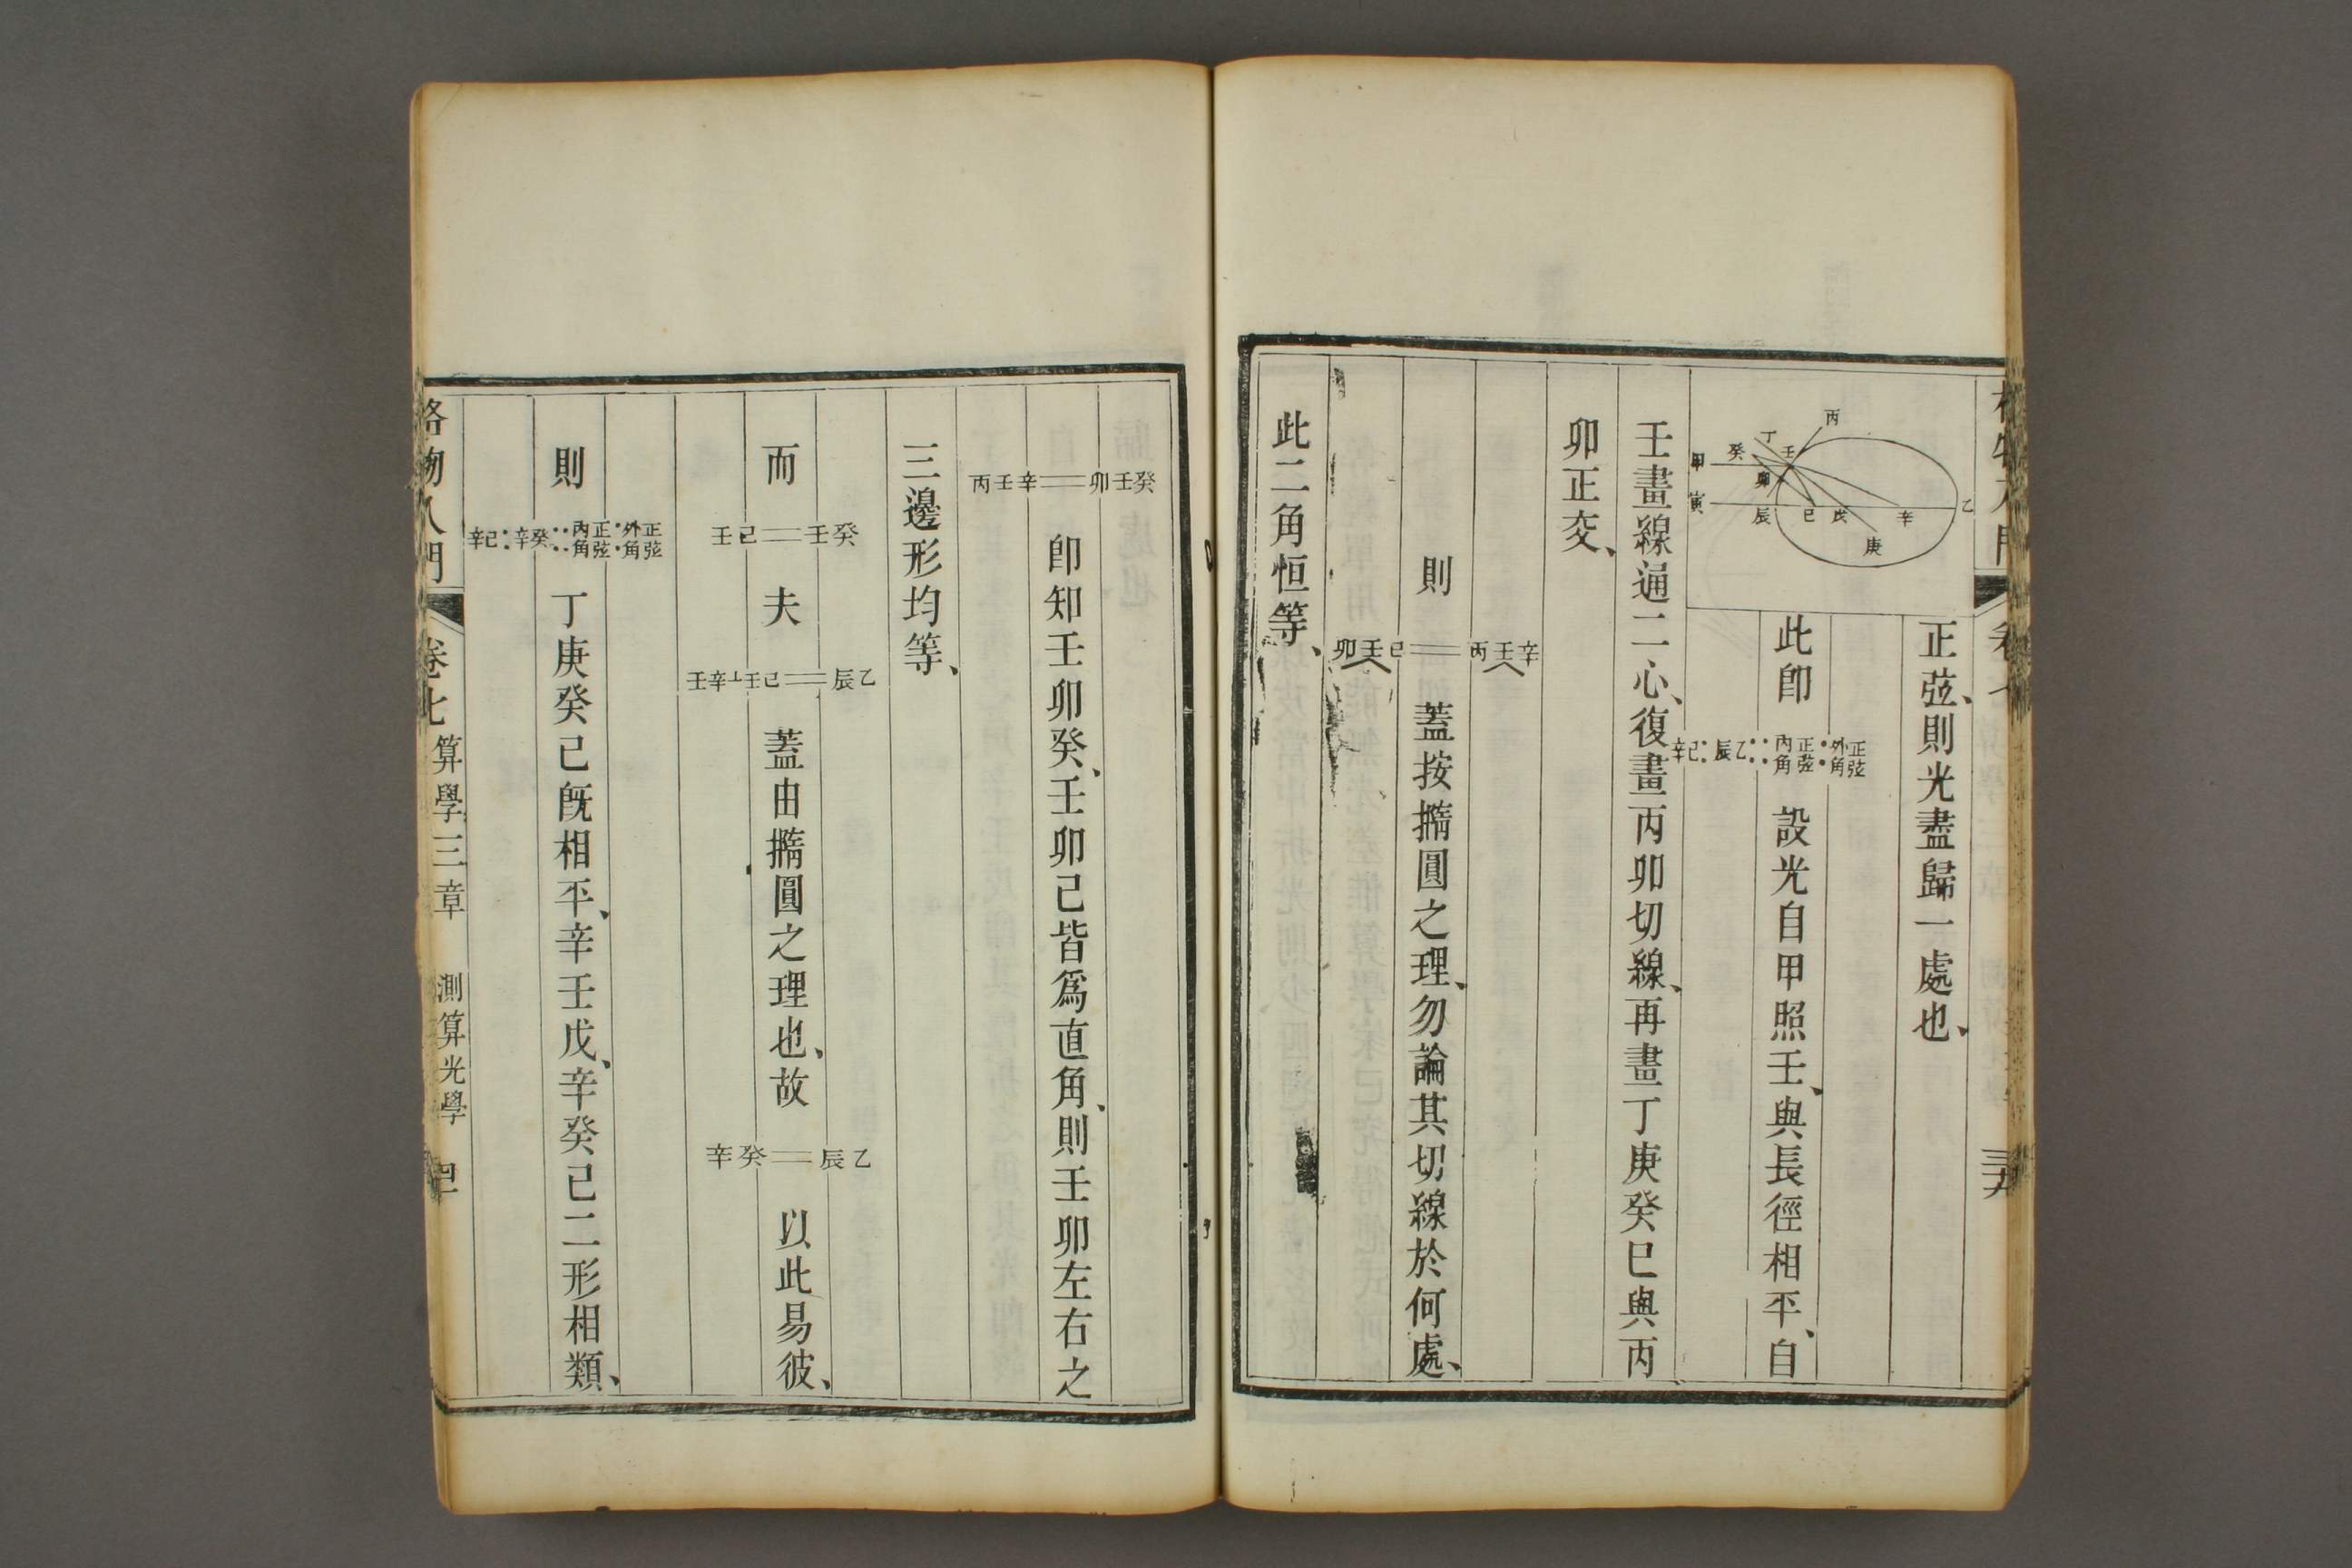 格物入門
卷七
三九
丙
丁
癸
壬
甲
卯
寅
辰
己
戊
辛
乙
庚
正弦、則光盡歸一處也、
此卽
辛己:辰乙::正弦內角:正弦外角
設光自甲照壬、與長徑相平、自
壬畫線通二心、復畫丙卯切線、再畫丁庚癸巳與丙
卯正交、
則
卯壬己══丙壬辛
蓋按撱圓之理、勿論其切線於何處、
此二角恒等、
丙壬辛══卯壬癸
卽知壬卯癸、壬卯己皆爲直角、則壬卯左右之
三邊形均等、
而
壬己══壬癸
夫
壬辛⊥壬己══辰乙
蓋由撱圓之理也、故
辛癸══辰乙
以此易彼、
則
辛己:辛癸::正弦內角:正弦外角
丁庚癸己旣相平、辛壬戊、辛癸己二形相類、
格物入門
卷七
算學三章
測算光學
四十